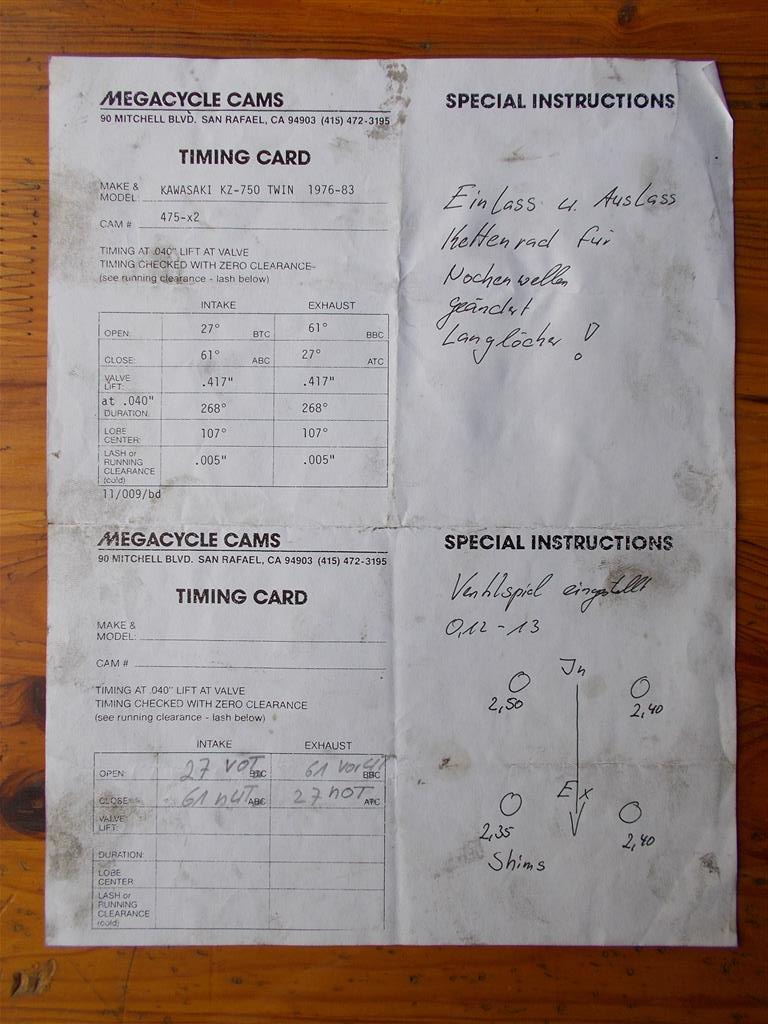 MEGACYCLE CAMS
90 MITCHELL BLVD. SAN RAFAEL, CA 94903 (415) 472-3195
TIMING CARD
MAKE & MODEL: KAWASAKI KZ-750 TWIN 1976-83
CAM # 475-x2
TIMING AT .040" LIFT AT VALVE
TIMING CHECKED WITH ZERO CLEARANCE
(see running clearance - lash below)
INTAKE EXHAUST
OPEN: 27° BTC 61° BBC
CLOSE: 61° ABC 27° ATC
VALVE LIFT: .417" .417"
at .040" DURATION: 268° 268°
LOBE CENTER: 107° 107°
LASH or RUNNING CLEARANCE (cold) .005" .005"
11/009/bd
SPECIAL INSTRUCTIONS
Einlass u. Auslass
Kettenrad für
Nockenwellen
geändert
Langlöcher !
MEGACYCLE CAMS
90 MITCHELL BLVD. SAN RAFAEL, CA 94903 (415) 472-3195
TIMING CARD
MAKE & MODEL:
CAM #
TIMING AT .040" LIFT AT VALVE
TIMING CHECKED WITH ZERO CLEARANCE
(see running clearance - lash below)
INTAKE EXHAUST
OPEN: 27 VOT BTC 61 BBC
CLOSE: 61 nUT ABC 27 nOT ATC
VALVE LIFT:
DURATION:
LOBE CENTER:
LASH or RUNNING CLEARANCE (cold)
SPECIAL INSTRUCTIONS
Ventilspiel eingestellt
0,12 - 13
In
2,50 2,40
Ex
2,35 2,40
Shims